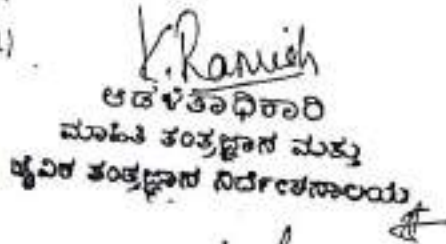 K. Ramesh
ಆಡಳಿತಾಧಿಕಾರಿ
ಮಾಹಿತಿ ತಂತ್ರಜ್ಞಾನ ಮತ್ತು
ಜೈವಿಕ ತಂತ್ರಜ್ಞಾನ ನಿರ್ದೇಶನಾಲಯ